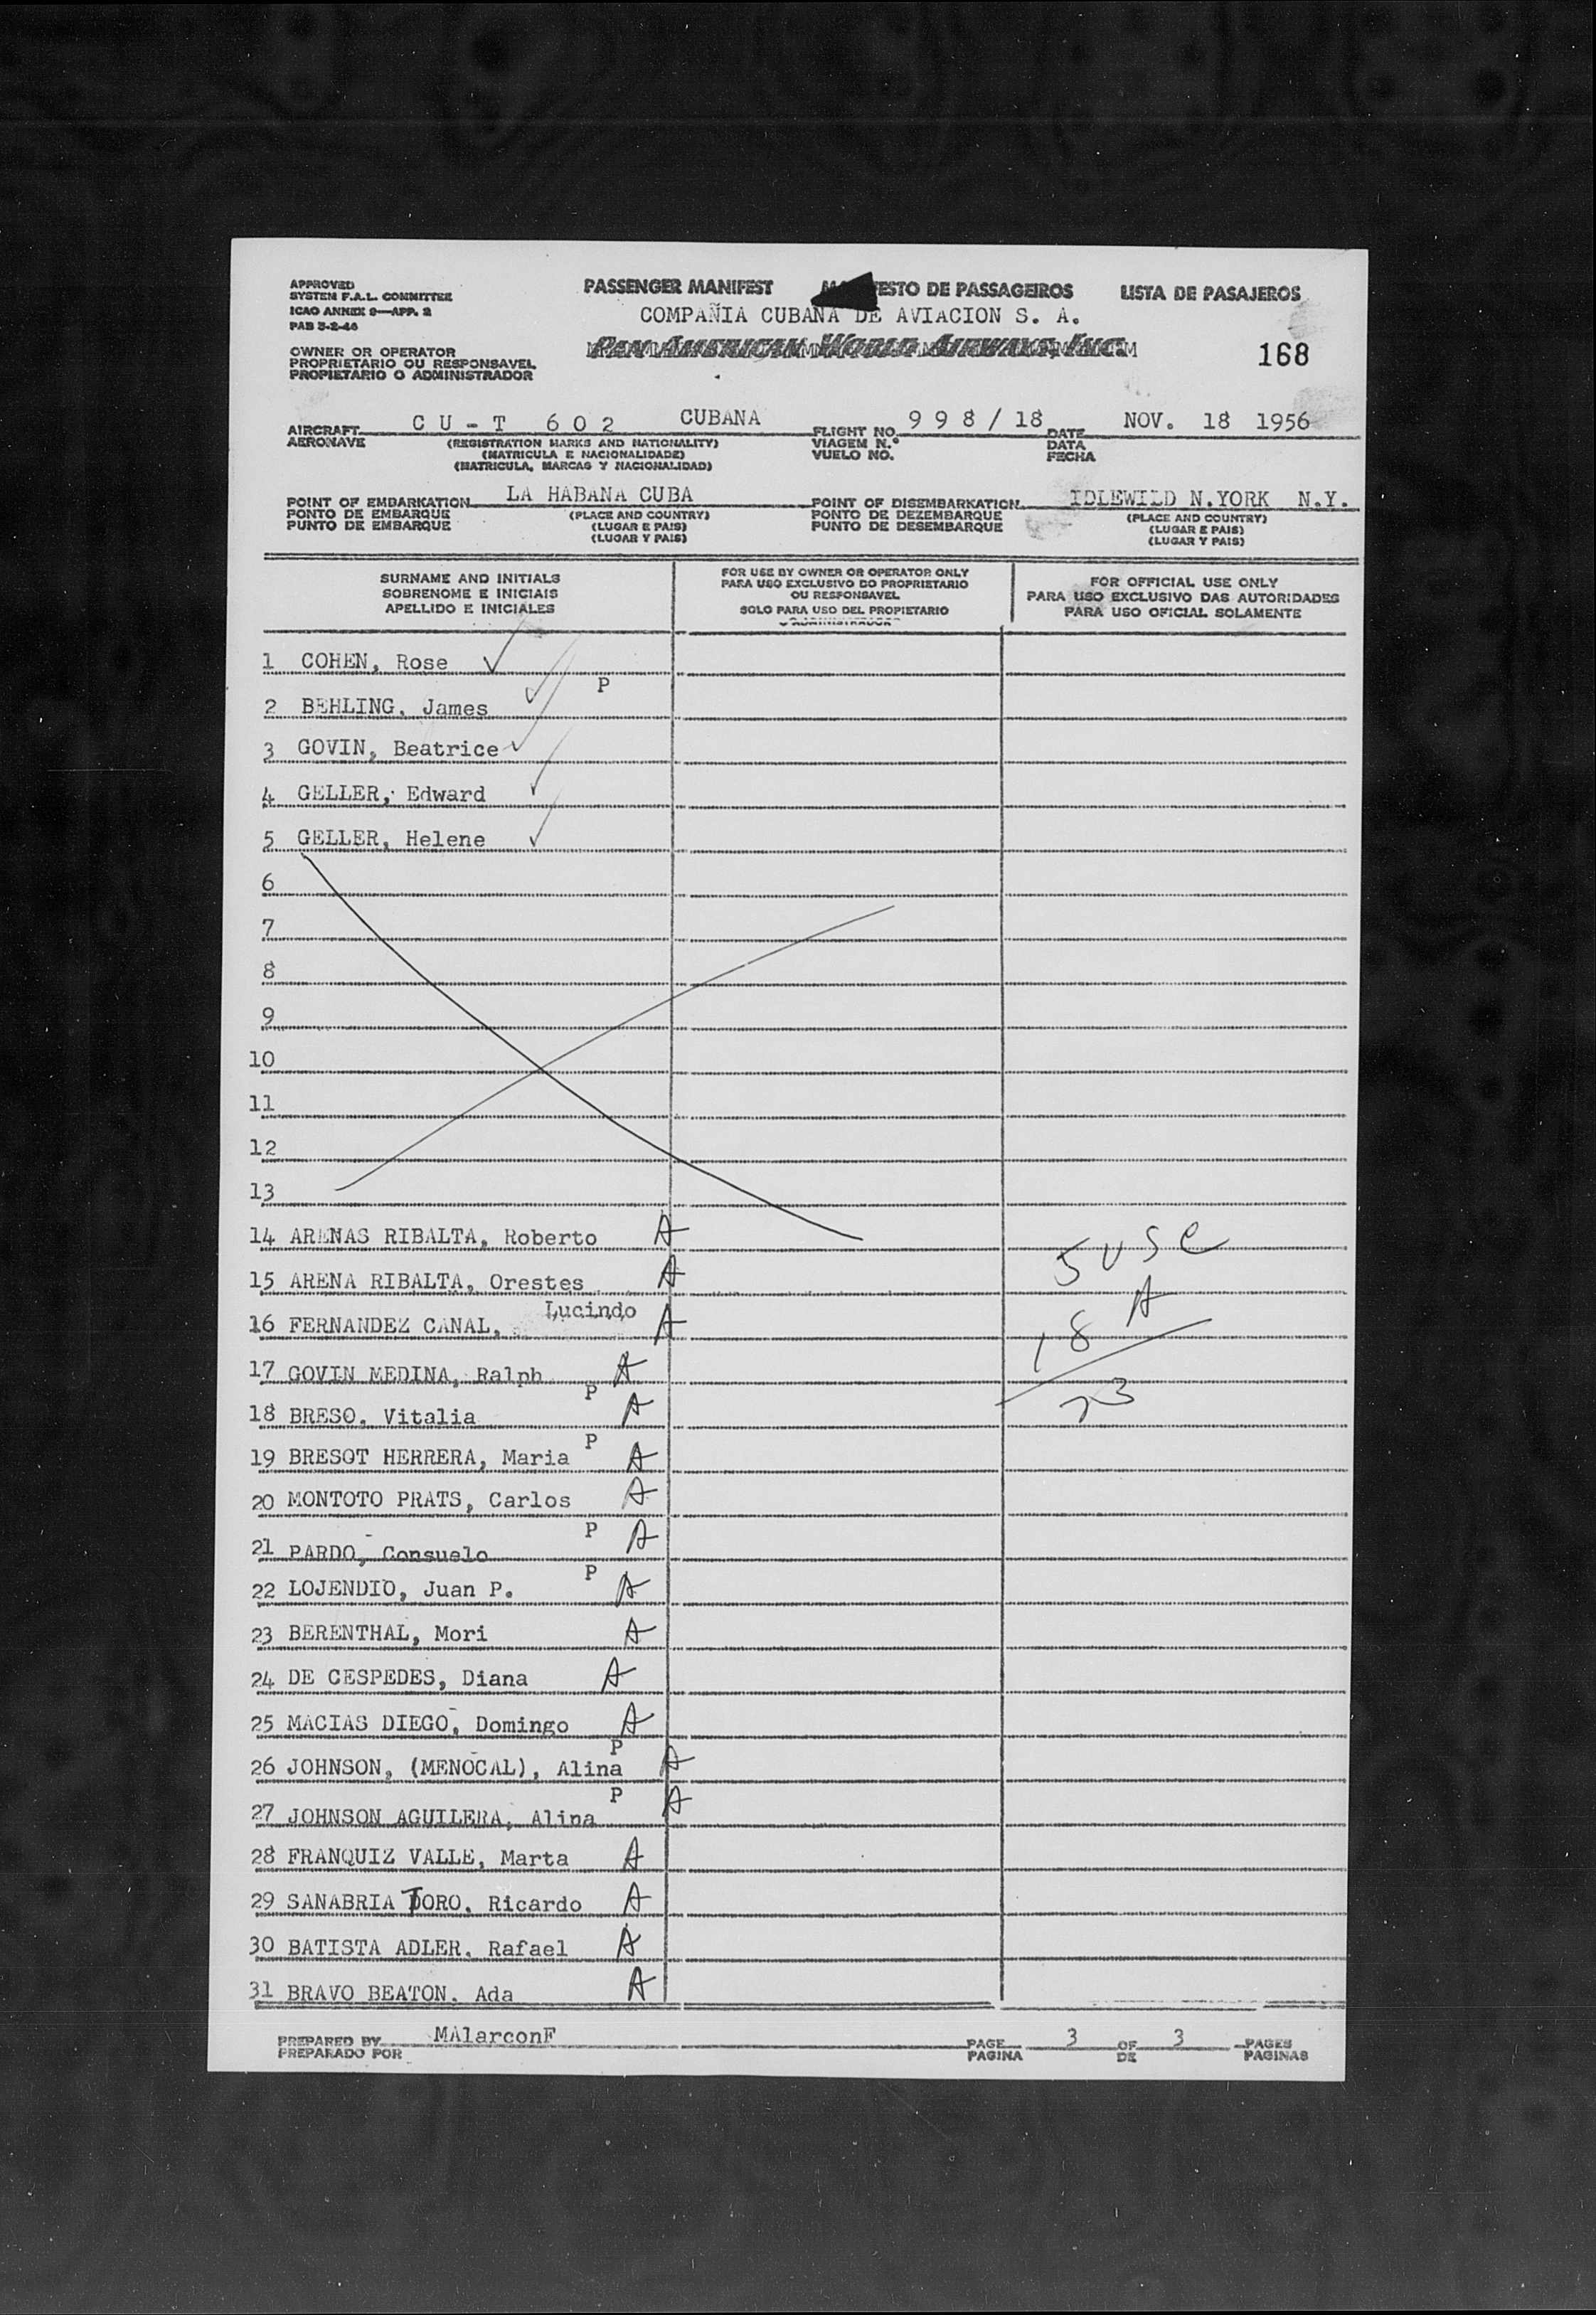 APPROVED
SYSTEM F.A.L. COMMITTEE
ICAO ANNEX 9—APP. 2
PAB 3-2-46
PASSENGER MANIFEST ESTO DE PASSAGEIROS LISTA DE PASAJEROS
COMPAÑIA CUBANA DE AVIACION S. A.
PAN AMERICAN WORLD AIRWAYS, INC.
168
OWNER OR OPERATOR
PROPRIETARIO OU RESPONSAVEL
PROPIETARIO O ADMINISTRADOR
AIRCRAFT CU-T 602 CUBANA FLIGHT NO. 998/18 DATE NOV. 18 1956
AERONAVE (REGISTRATION MARKS AND NATIONALITY) VIAGEM N.º DATA
(MATRICULA E NACIONALIDADE) VUELO NO. FECHA
(MATRICULA, MARCAS Y NACIONALIDAD)
POINT OF EMBARKATION LA HABANA CUBA POINT OF DISEMBARKATION IDLEWILD N.YORK N.Y.
PONTO DE EMBARQUE (PLACE AND COUNTRY) PONTO DE DEZEMBARQUE (PLACE AND COUNTRY)
PUNTO DE EMBARQUE (LUGAR E PAIS) PUNTO DE DESEMBARQUE (LUGAR E PAIS)
(LUGAR Y PAIS) (LUGAR Y PAIS)
SURNAME AND INITIALS
SOBRENOME E INICIAIS
APELLIDO E INICIALES
FOR USE BY OWNER OR OPERATOR ONLY
PARA USO EXCLUSIVO DO PROPRIETARIO
OU RESPONSAVEL
SOLO PARA USO DEL PROPIETARIO
O ADMINISTRADOR
FOR OFFICIAL USE ONLY
PARA USO EXCLUSIVO DAS AUTORIDADES
PARA USO OFICIAL SOLAMENTE
1 COHEN, Rose
2 BEHLING, James P
3 GOVIN, Beatrice
4 GELLER, Edward
5 GELLER, Helene
6
7
8
9
10
11
12
13
14 ARENAS RIBALTA, Roberto A
15 ARENA RIBALTA, Orestes A
16 FERNANDEZ CANAL, Lucindo A
17 GOVIN MEDINA, Ralph A
18 BRESO, Vitalia P A
19 BRESOT HERRERA, Maria P A
20 MONTOTO PRATS, Carlos A
21 PARDO, Consuelo P A
22 LOJENDIO, Juan P. P A
23 BERENTHAL, Mori A
24 DE CESPEDES, Diana A
25 MACIAS DIEGO, Domingo A
26 JOHNSON, (MENOCAL), Alina P A
27 JOHNSON AGUILERA, Alina P A
28 FRANQUIZ VALLE, Marta A
29 SANABRIA TORO, Ricardo A
30 BATISTA ADLER, Rafael A
31 BRAVO BEATON, Ada A
5 USC
18 A
23
PREPARED BY MAlarconF PAGE 3 OF 3 PAGES
PREPARADO POR PAGINA DE PAGINAS